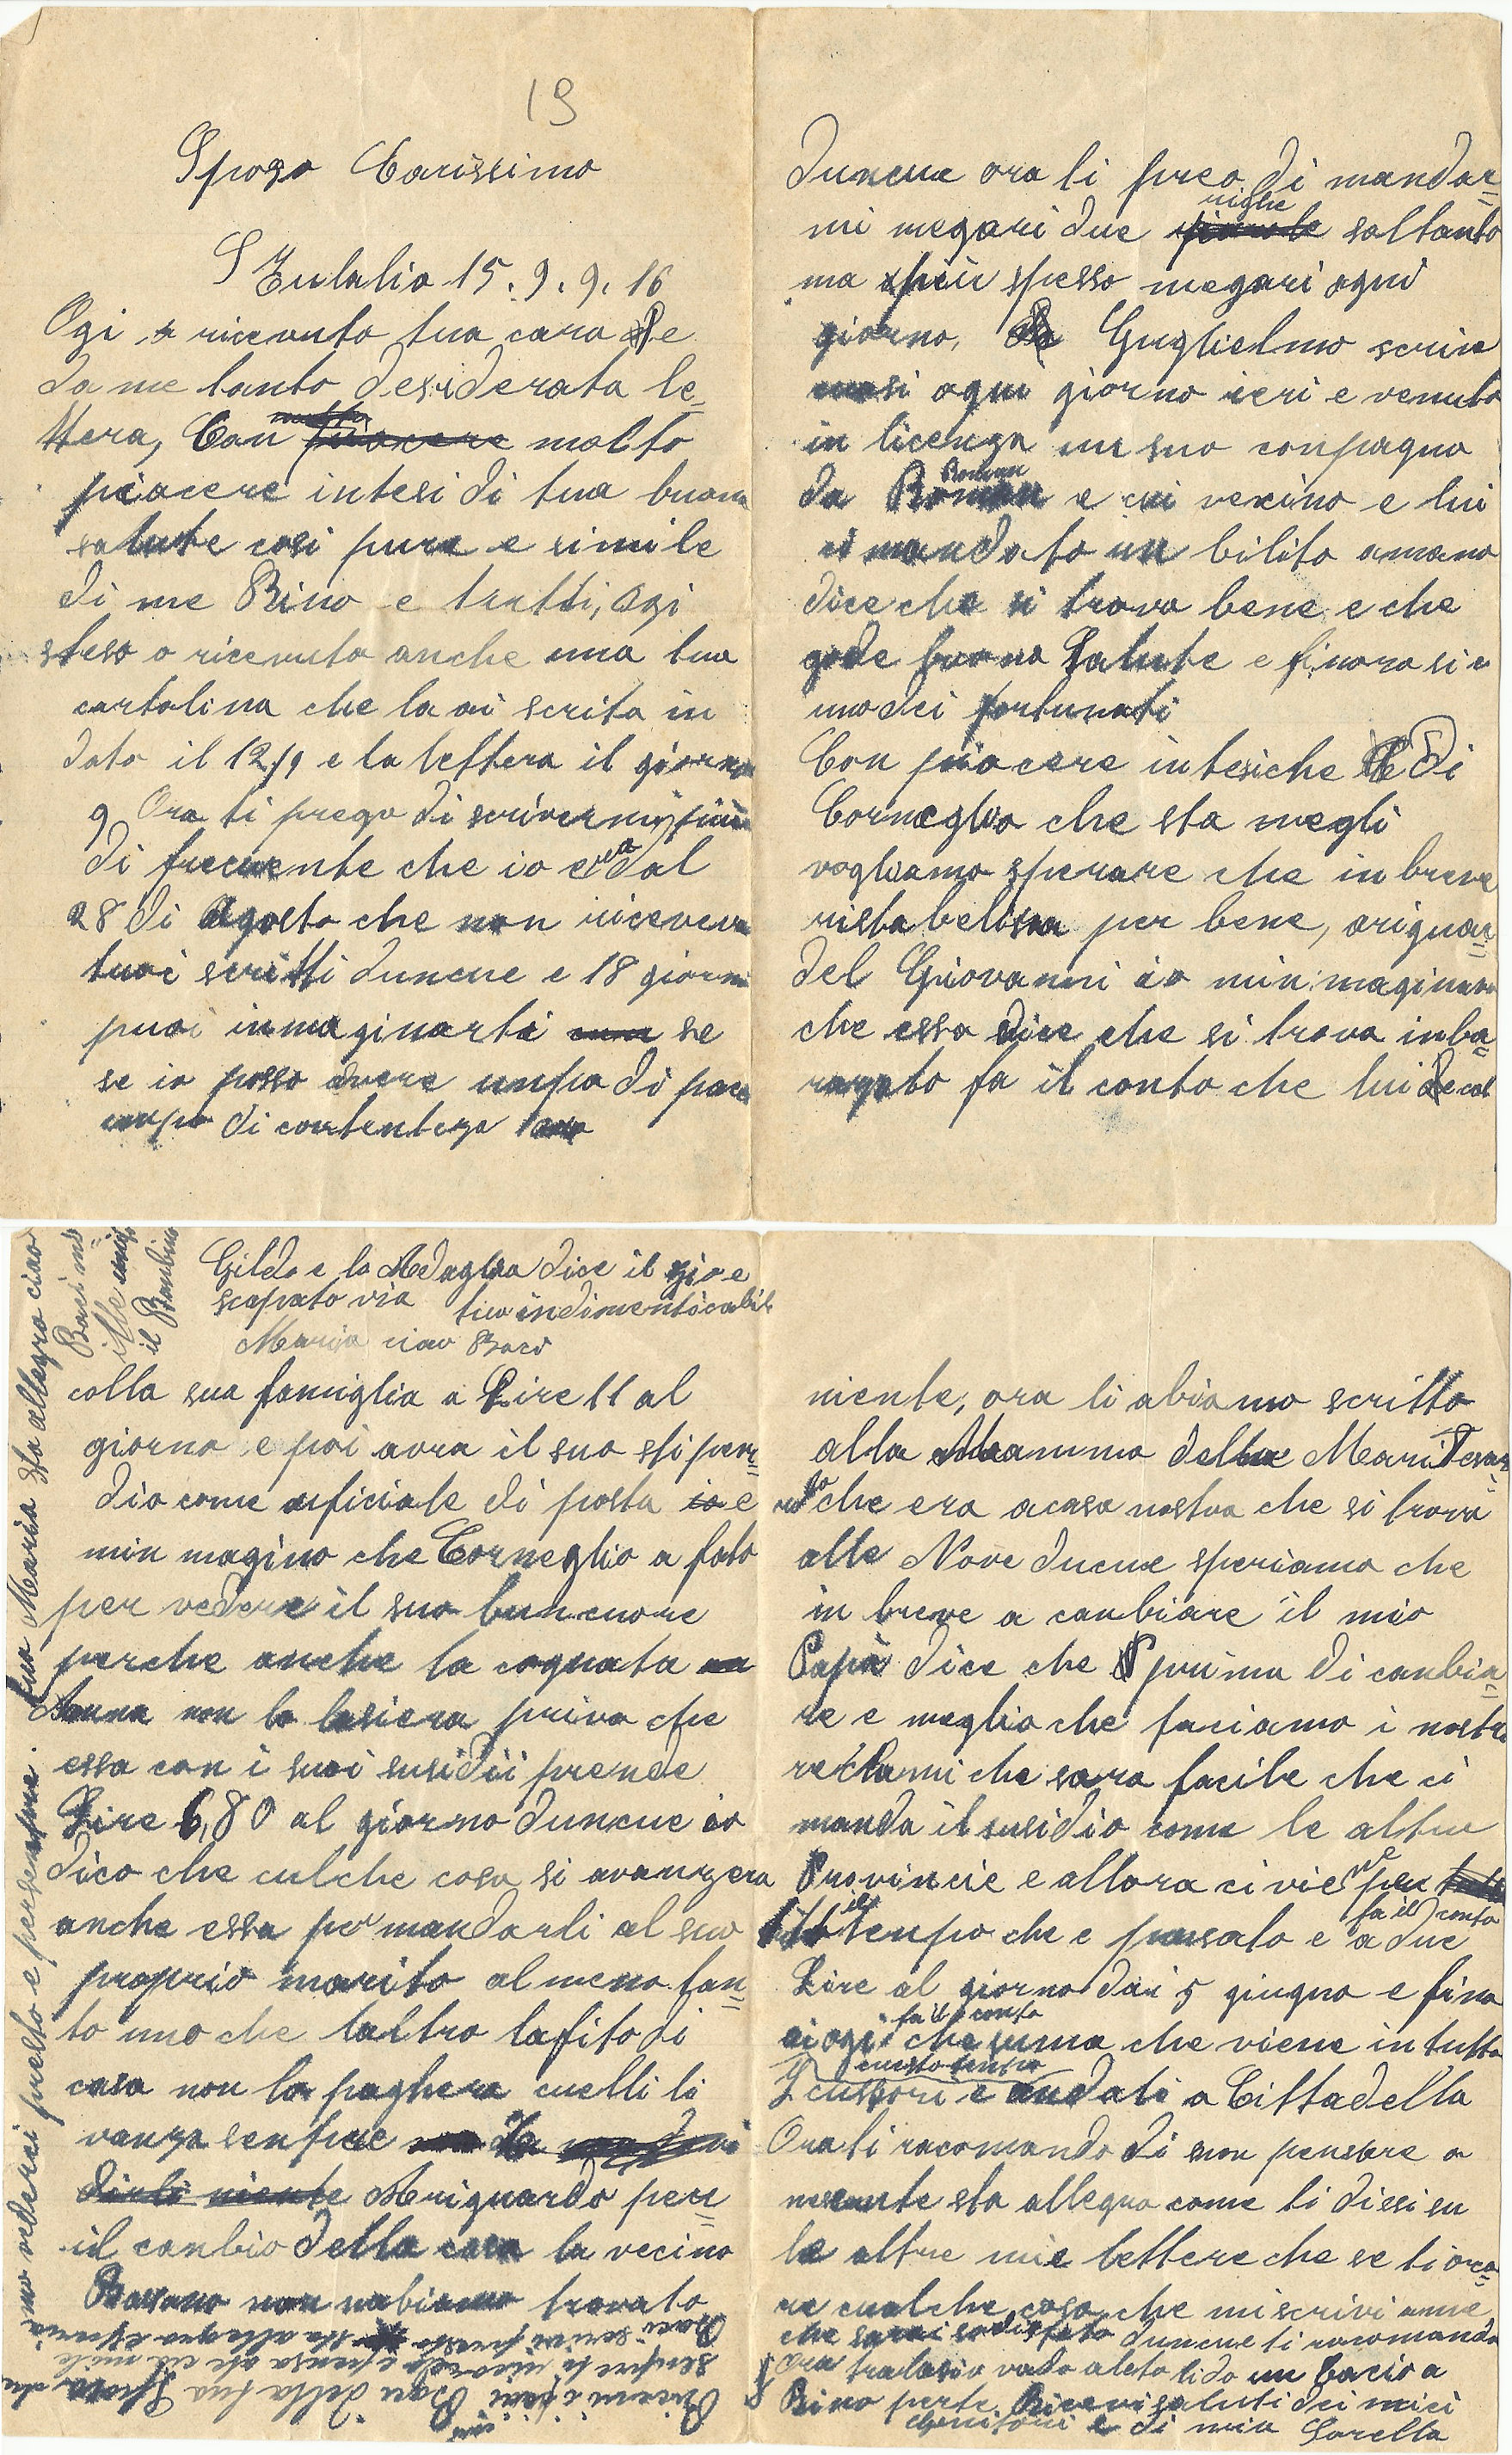 19
Sposo Carissimo
S Eulalia 15.9.9.16
Ogi o ricevuto tua cara e
da me tanto desiderata le=
ttera, Con molto
piacere intesi di tua buona
salute cosi pure e simile
di me Rino e tutti, Ogi
steso o ricevuto anche una tua
cartolina che la ai scrita in
dato il 12/9 e la lettera il giorno
9 Ora ti prego di scrivermi piu
di frecuente che io era dal
28 di Agosto che non riceveva
tuoi scritti duncue e 18 giorni
puoi inmaginarti se
se io posso avere unpo di pace
unpo di contenteza
Duncue ora ti preo di mandar=
mi megari due righe soltanto
ma piu spesso megari ogni
giorno, Guglielmo scrive
cuasi ogni giorno ieri e venuto
in licenza un suo conpagno
da Roman e cui vecino e lui
ci mandato un bilito amano
dice che si trova bene e che
gode buona Salute e finora si e
uno dei fortunati
Con piacere intesi che di
Corneglio che sta megli
vogliamo sperare che in breve
ristabelisa per bene, ariguar=
del Giovanni io min maginavo
che esso dice che si trova inba=
razato fa il conto che lui e col
Gildo e la Adaglia dice il zio e
scapato via tuo indimenticabile
Maria ciao Baci
colla sua famiglia a Lire 11 al
giorno e poi avra il suo stipen=
dio come uficiale di posta e
min magino che Corneglio a fato
per vedere il suo buncuore
perche anche la cognata
Anna non lo lasiera privo che
essa con i suoi susidii prende
Lire 6,80 al giorno duncue io
dico che culche cosa si avanzera
anche essa per mandarli al suo
proprio marito almeno fan=
to uno che laltro lafito di
casa non lo paghera cuelli li
vanza senpre
dirli niente Ariguardo per=
il canbio della casa la vecino
Bassano non nabiamo trovato
niente, ora li abiamo scritto
alla Mamma della Mari Tesar=
do che era acasa nostra che si trova
alle Nove ducue speriamo che
in breve a canbiare il mio
Papà dice che prima di canbia=
re e meglio che faciamo i nostri
reclami che sara facile che ci
manda il susidio come le altre
Provincie e allora ci viene per
tuto il tenpo che e pasato e fa il conto a due
Lire al giorno dai 5 giugno e fino
ai ogi fa il conto che suma che viene in tutto
cuesto tenpo
I cussori e andati a Cittadella
Ora ti racomando di non pensere a
nesunte sta allegro come ti dissi su
le altre mie lettere che se ti oco=
re cualche cosa che mi scrivi ame
che sarai sodisfato duncue ti racomando
Ora tralasio vado aleto lido un bacio a
Rino perte Ricevi saluti dei miei
Genitori e di mia Sorella
Ricevi i piu Baci della tua Sposa che
senpre ti ricorda e pensa ate ciao mile
Baci scrivi presto sta allegro e speria=
mo vederci presto e persenpre. tua Maria sta allegro ciao
Baci mi=
lle unito
il Banbino